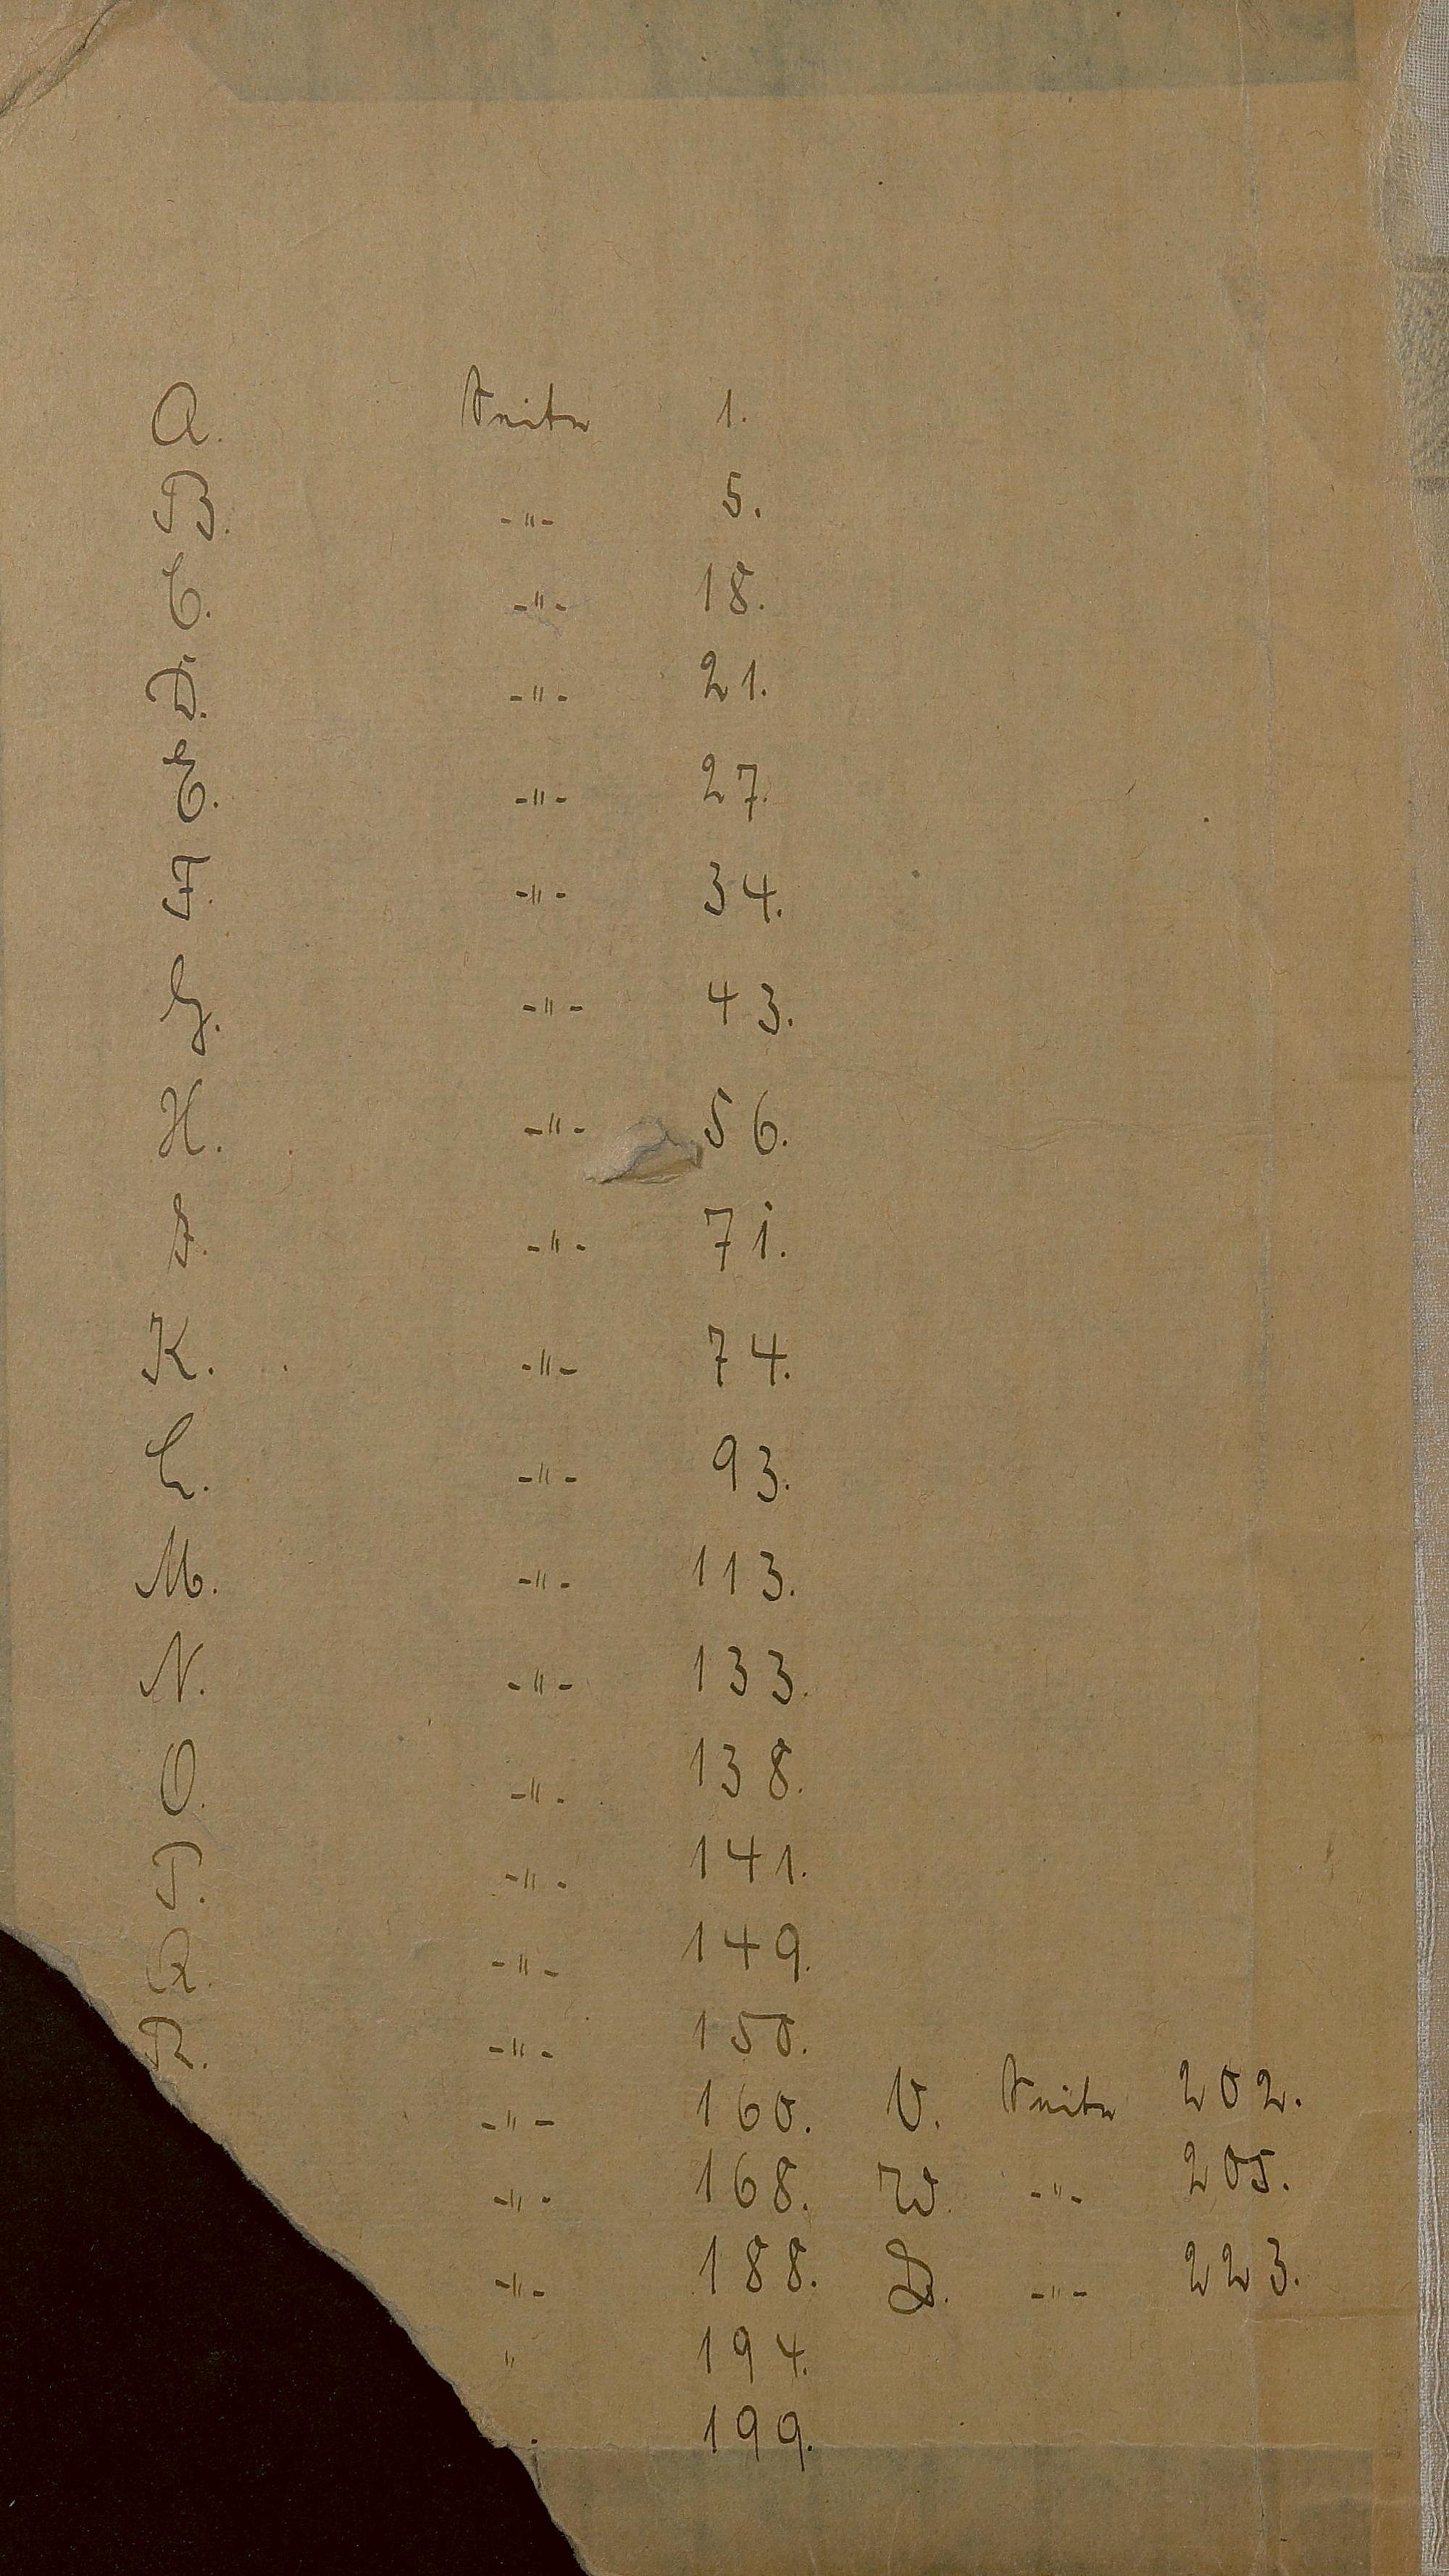 A. Seite 1.
B. -"- 5.
C. -"- 18.
D. -"- 21.
E. -"- 27.
F. -"- 34.
G. -"- 43.
H. -"- 56.
I. -"- 71.
K. -"- 74.
L. -"- 93.
M. -"- 113.
N. -"- 133.
O. -"- 138.
P. -"- 141.
Q. -"- 149.
R. -"- 150.
-"- 160. V. Seite 202.
-"- 168. W. -"- 205.
-"- 188. Z. -"- 223.
" 194.
199.